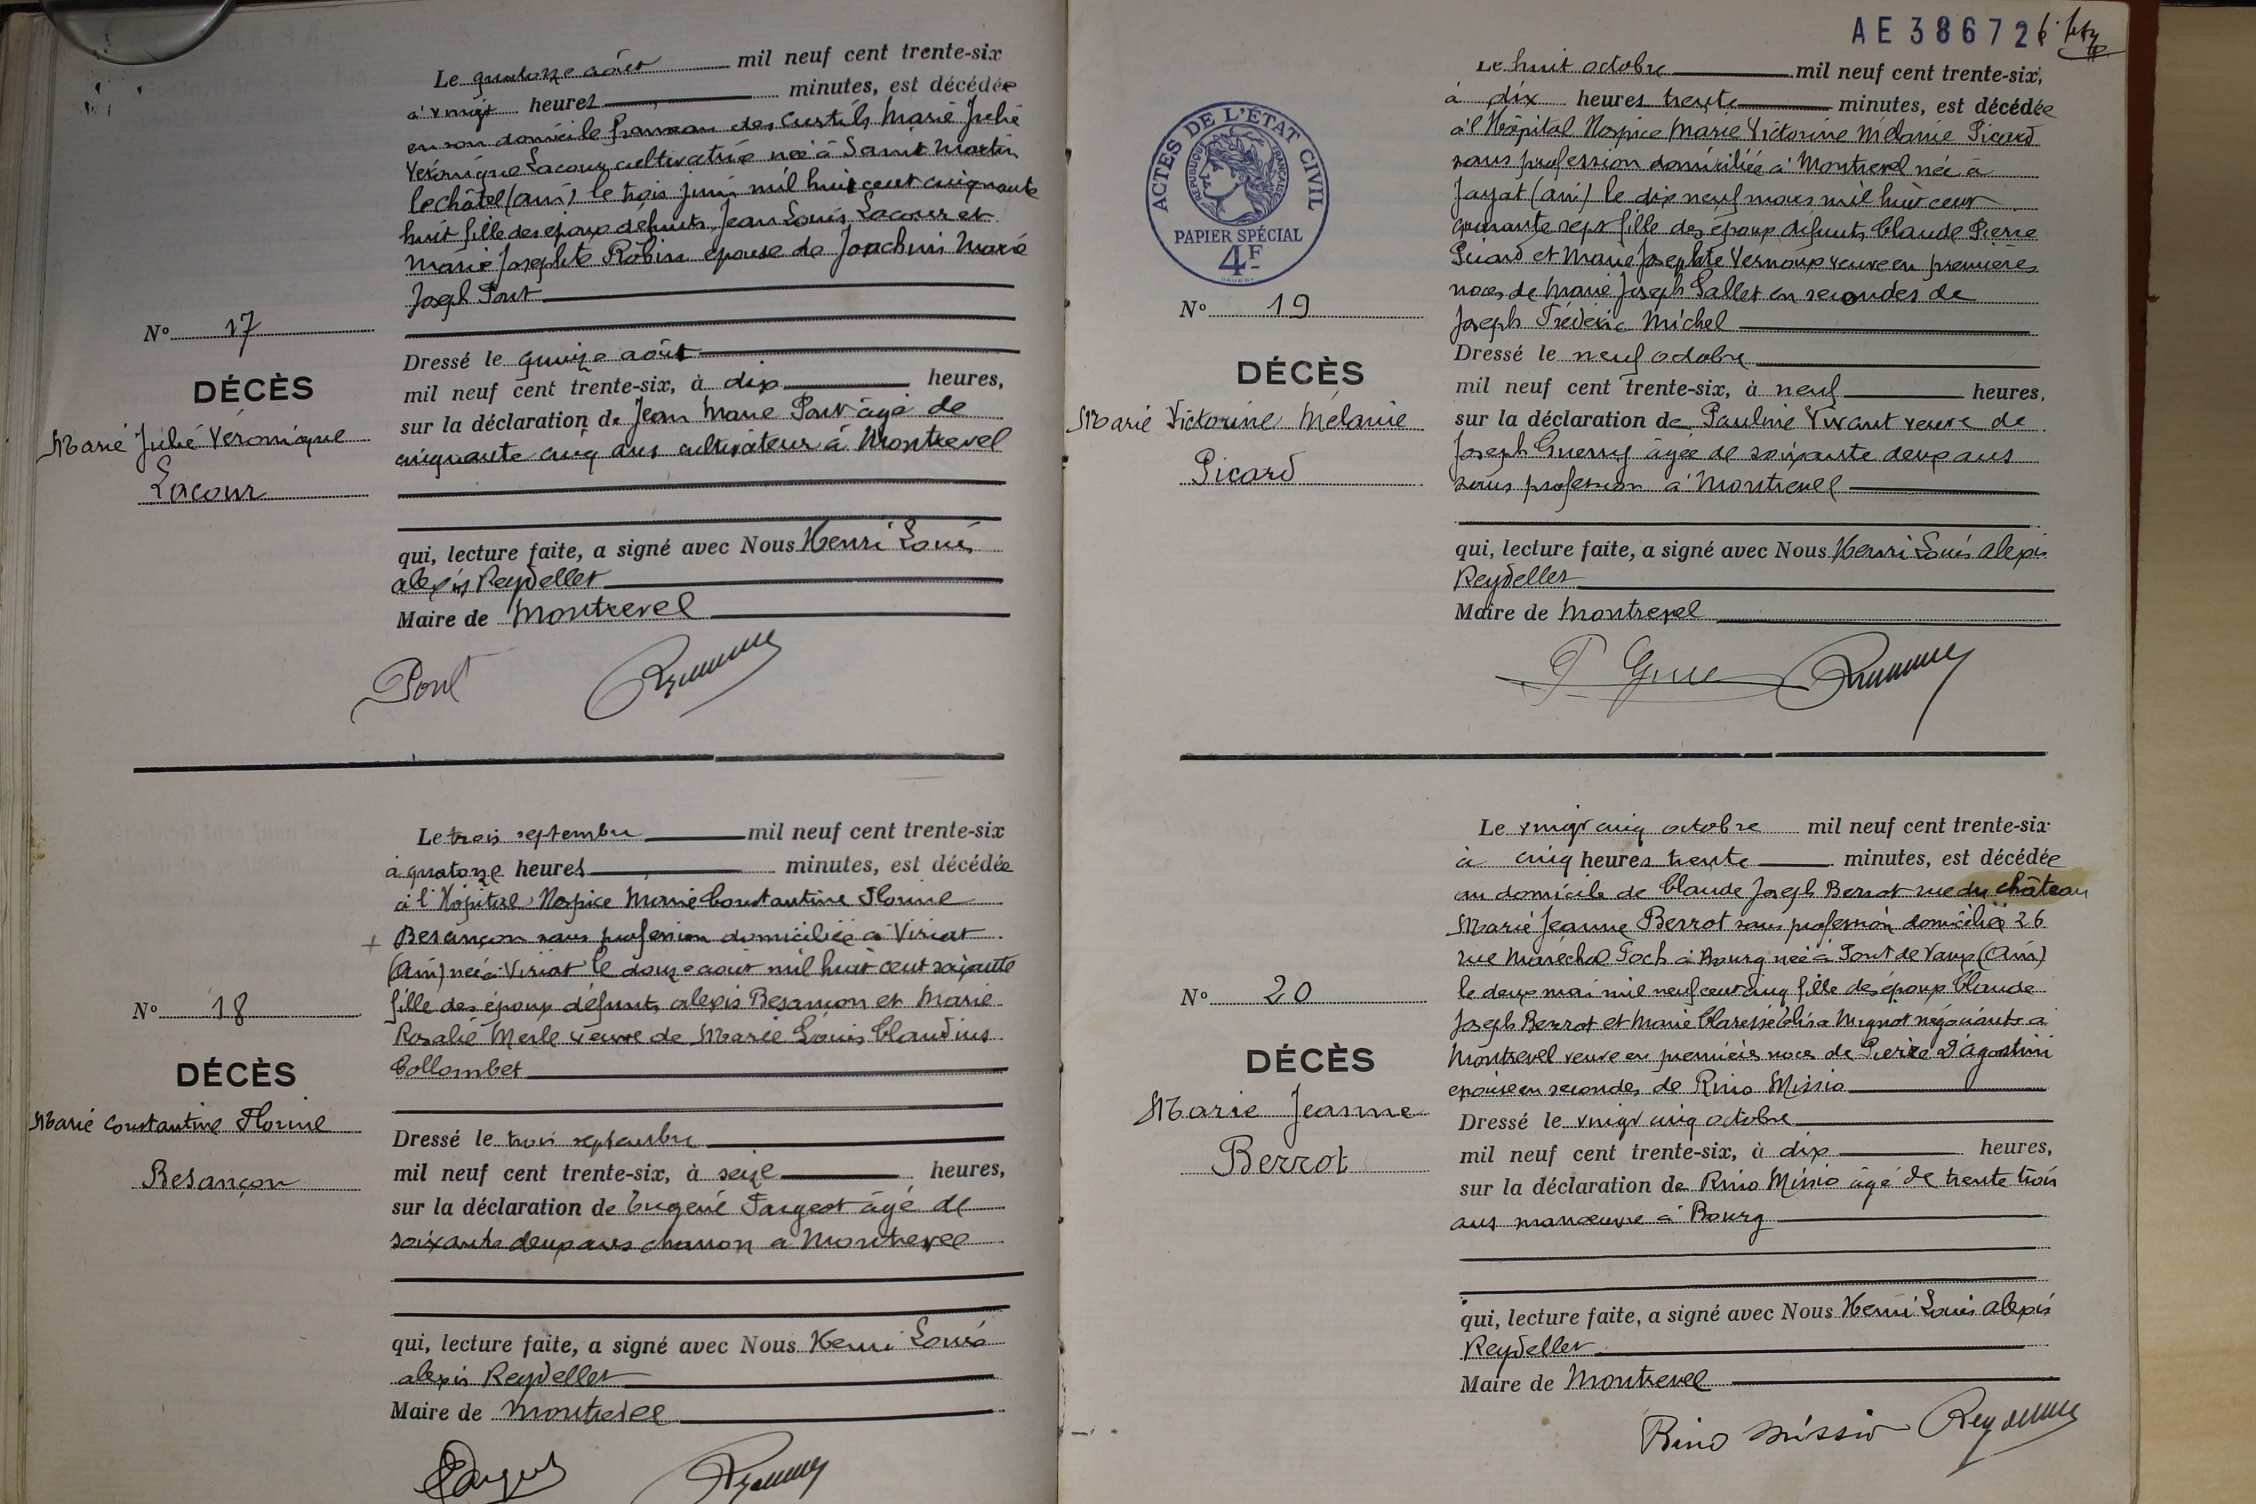 Le quatorze août mil neuf cent trente-six
à vingt heures minutes, est décédée
en son domicile hameau des Curtils Marie Julie
Véronique Lacour cultivatrice née à Saint Martin
le châtel (ain) le trois juin mil huit cent cinquante
huit fille des époux défunts Jean Louis Lacour et
Marie Josephte Robin épouse de Joachim Marie
Joseph Pont
N° 17
DÉCÈS
Marie Julie Véronique
Lacour
Dressé le quinze août
mil neuf cent trente-six, à dix heures,
sur la déclaration de Jean Marie Pont âgé de
cinquante cinq ans cultivateur à Montrevel
qui, lecture faite, a signé avec Nous Henri Louis
alexis Reydellet
Maire de Montrevel
Pont
Le trois septembre mil neuf cent trente-six
à quatorze heures minutes, est décédée
à l'Hôpital-Hospice Marie Constantine Florine
Besançon sans profession domiciliée à Viriat
(Ain) née à Viriat le douze août mil huit cent soixante
fille des époux défunts alexis Besançon et Marie
Rosalie Merle veuve de Marie Louis Claudius
Collombet
N° 18
DÉCÈS
Marie Constantine Florine
Besançon
Dressé le trois septembre
mil neuf cent trente-six, à seize heures,
sur la déclaration de Eugène Fargeot âgé de
soixante deux ans charron à Montrevel
qui, lecture faite, a signé avec Nous Henri Louis
alexis Reydellet
Maire de Montrevel
AE 386726
ACTES DE L'ÉTAT CIVIL
RÉPUBLIQUE FRANÇAISE
PAPIER SPÉCIAL
4F
Le huit octobre mil neuf cent trente-six,
à dix heures trente minutes, est décédée
à l'Hôpital Hospice Marie Victorine Mélanie Picard
sans profession domiciliée à Montrevel née à
Jayat (ain) le dix neuf mars mil huit cent
quarante sept fille des époux défunts Claude Pierre
Picard et Marie Josephte Vernoux veuve en premières
noces de Marie Joseph Pallet en secondes de
Joseph Fréderic Michel
N° 19
DÉCÈS
Marie Victorine Mélanie
Picard
Dressé le neuf octobre
mil neuf cent trente-six, à neuf heures,
sur la déclaration de Pauline Vivant veuve de
Joseph Guerry âgée de soixante deux ans
sans profession à Montrevel
qui, lecture faite, a signé avec Nous Henri Louis alexis
Reydellet
Maire de Montrevel
Le vingt cinq octobre mil neuf cent trente-six
à cinq heures trente minutes, est décédée
au domicile de Claude Joseph Berrot rue du château
Marie Jeanne Berrot sans profession domiciliée 26
rue Maréchal Foch à Bourg née à Pont de Vaux (Ain)
le deux mai mil neuf cent cinq fille des époux Claude
Joseph Berrot et Marie Claresse Elisa Mignot négociants à
Montrevel veuve en premières noces de Pierre D'agostini
épouse en secondes de Rino Missio
N° 20
DÉCÈS
Marie Jeanne
Berrot
Dressé le vingt cinq octobre
mil neuf cent trente-six, à dix heures,
sur la déclaration de Rino Missio âgé de trente trois
ans manœuvre à Bourg
qui, lecture faite, a signé avec Nous Henri Louis alexis
Reydellet
Maire de Montrevel
Rino Missio Reydellet